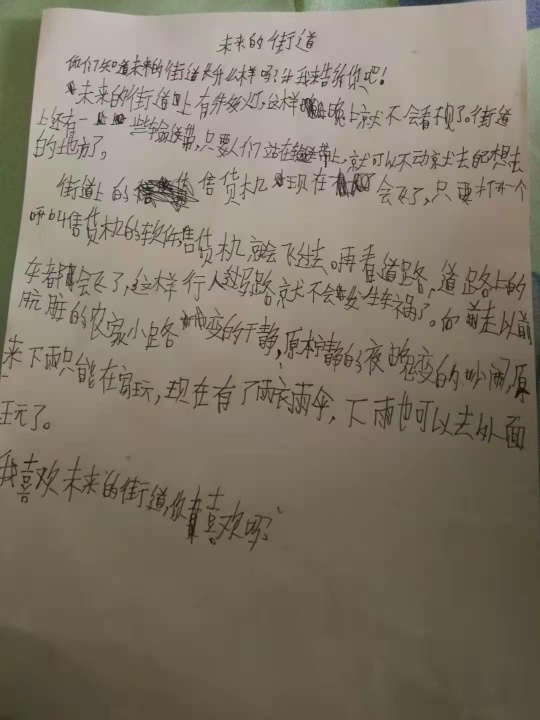 未来的街道
你们知道未来的街道是什么样吗?让我来告诉你吧!
未来的街道上有许多灯,这样晚上就不会看不见了。街道
上还有一些输送带,只要人们站在输送带上,就可以不动就去自己想去
的地方了。
街道上的售货机现在会飞了,只要打开一个
呼叫售货机的软件,售货机就会飞过去。再看道路,道路上的
车都会飞了,这样行人过马路就不会发生车祸了。向前走以前
肮脏的农家小路变的干静,原本宁静的夜晚变的吵闹,原
来下雨只能在家玩,现在有了雨衣雨伞,下雨也可以去外面
玩了。
我喜欢未来的街道,你喜欢吗?